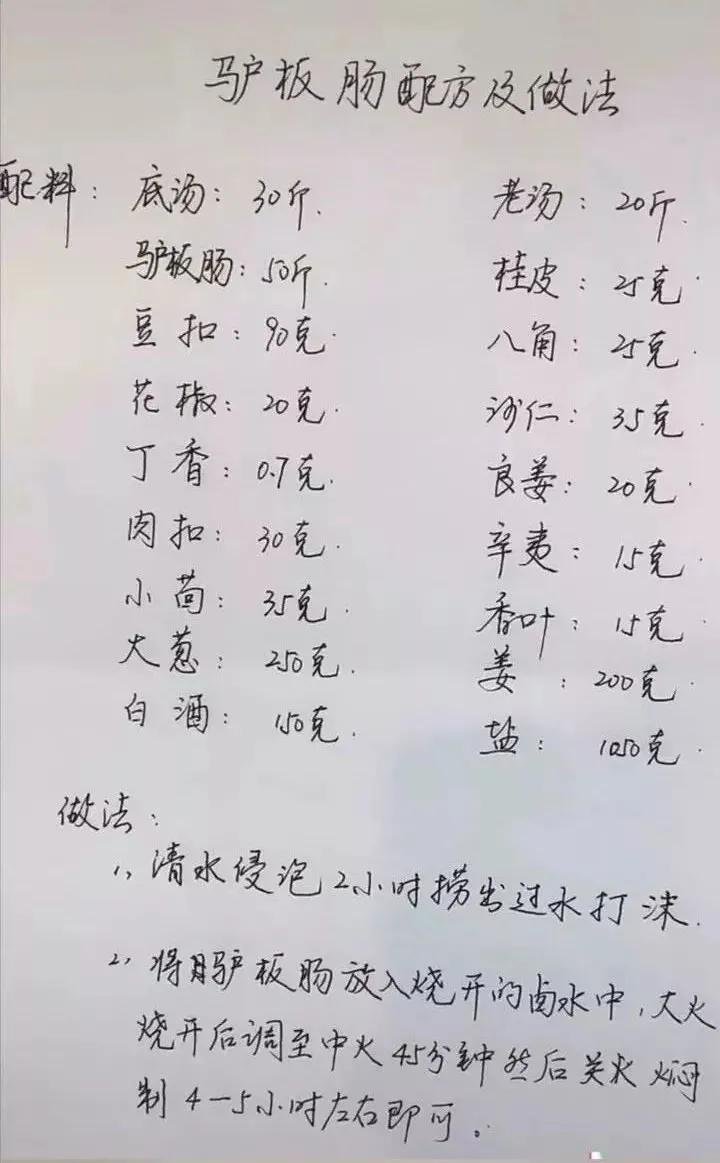 驴板肠配方及做法
配料： 底汤：30斤. 老汤：20斤.
驴板肠：50斤. 桂皮：25克.
豆扣：90克. 八角：25克.
花椒：20克. 沙仁：35克.
丁香：0.7克. 良姜：20克.
肉扣：30克. 辛夷：15克.
小茴：35克. 香叶：15克.
大葱：250克. 姜：200克.
白酒：150克. 盐：1050克.
做法：
1、清水侵泡2小时捞出过水打沫.
2、将驴板肠放入烧开的卤水中，大火
烧开后调至中火45分钟然后关火焖
制4一5小时左右即可。